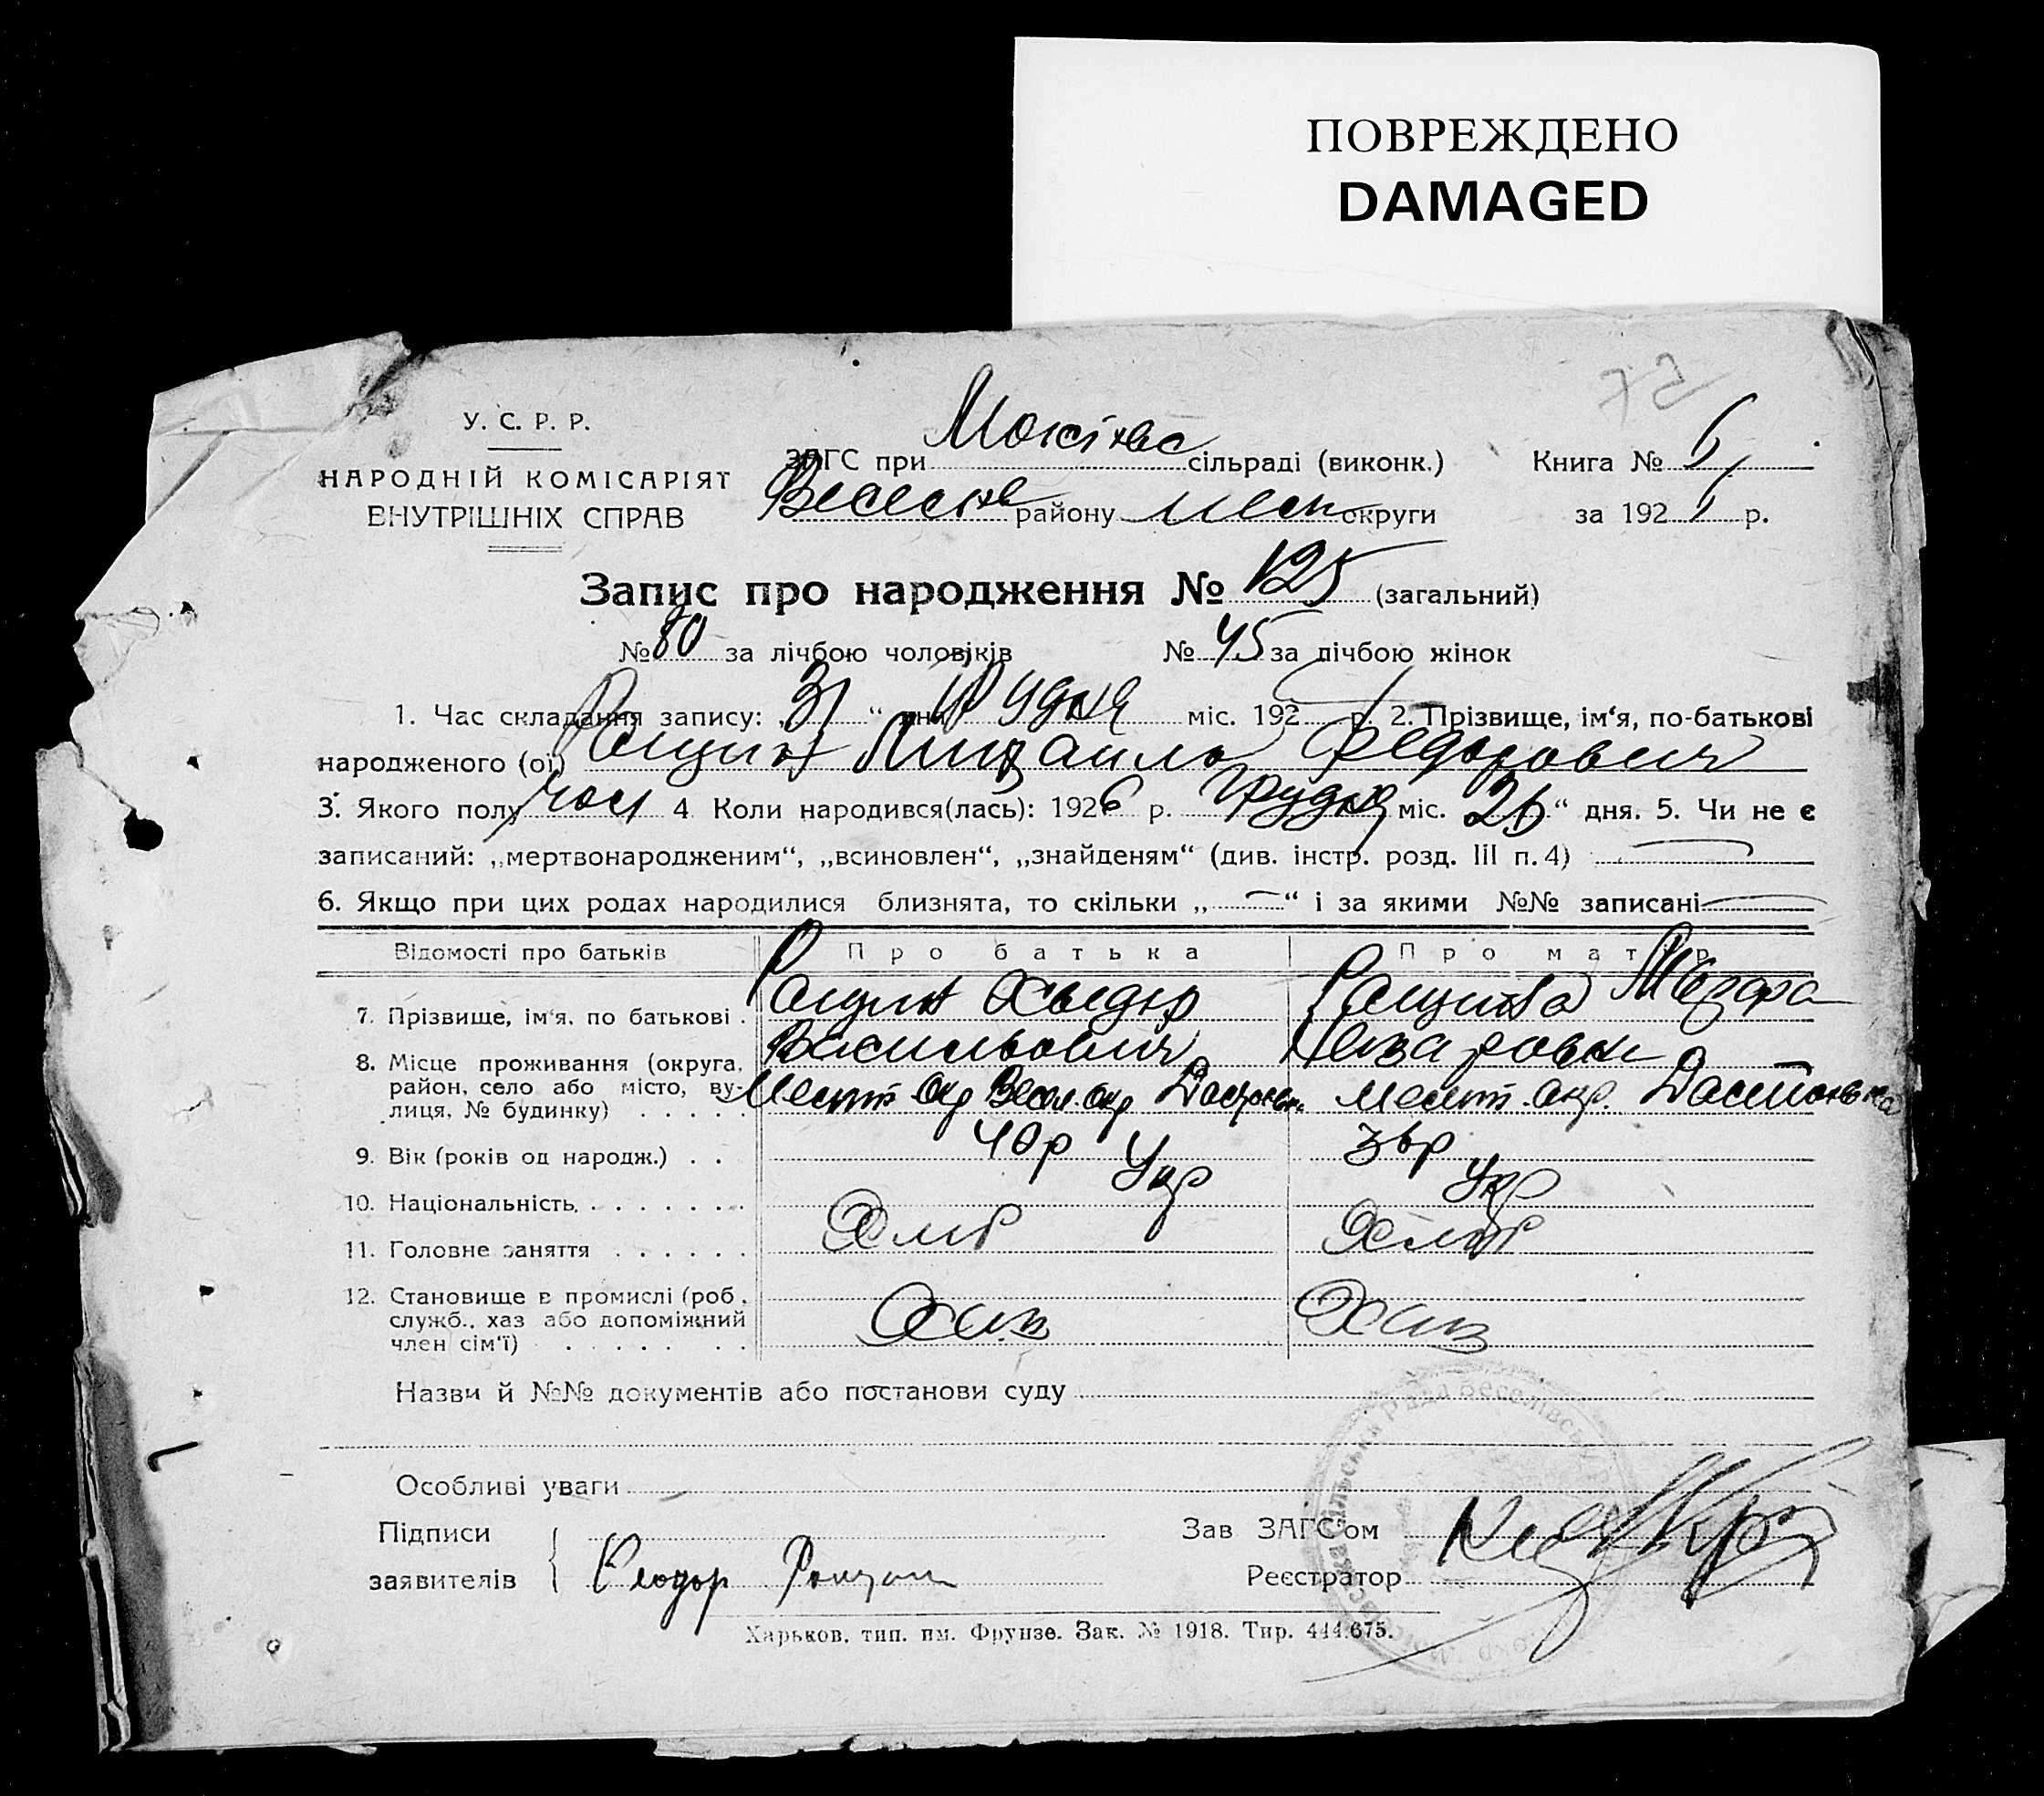 ПОВРЕЖДЕНО
DAMAGED
У. С. Р. Р.
НАРОДНІЙ КОМІСАРІЯТ
ВНУТРІШНІХ СПРАВ
ЗАГС при сільраді (виконк.)
району округи
Книга №
за 192 р.
Запис про народження № 125 (загальний)
№ 80 за лічбою чоловіків № 45 за лічбою жінок
1. Час складання запису: „31“ дня Грудня міс. 192 р. 2. Прізвище, ім‘я, по-батькові
народженого (ої) Ращин Михаило Федорович
3. Якого полу чол 4 Коли народився(лась): 1926 р. Грудня міс. 26“ дня. 5. Чи не є
записаний: „мертвонародженим“, „всиновлен“, „знайденям“ (див. інстр. розд. III п. 4)
6. Якщо при цих родах народилися близнята, то скільки „ “ і за якими №№ записані
Відомості про батьків Про батька Про матір
7. Прізвище, ім‘я, по батькові . Ращин Хведір Ращина
Васильович Назаровна
8. Місце проживання (округа,
район, село або місто, ву-
лиця, № будинку) . . . . . Меліт Окр Весел Меліт. окр.
9. Вік (років од народж.) . . 40р 36р
10. Національність . . . . . . . Укр Укр
11. Головне заняття . . . . . . Хліб Хліб
12. Становище в промислі (роб.,
служб., хаз або допоміжний
член сім‘ї) . . . . . . . Хаз Хаз
Назви й №№ документів або постанови суду
Особливі уваги
Підписи
заявителів Федор Ращин
Зав ЗАГС‘ом
Реєстратор
Харьков, тип. им. Фрунзе. Зак. № 1918. Тир. 444.675.